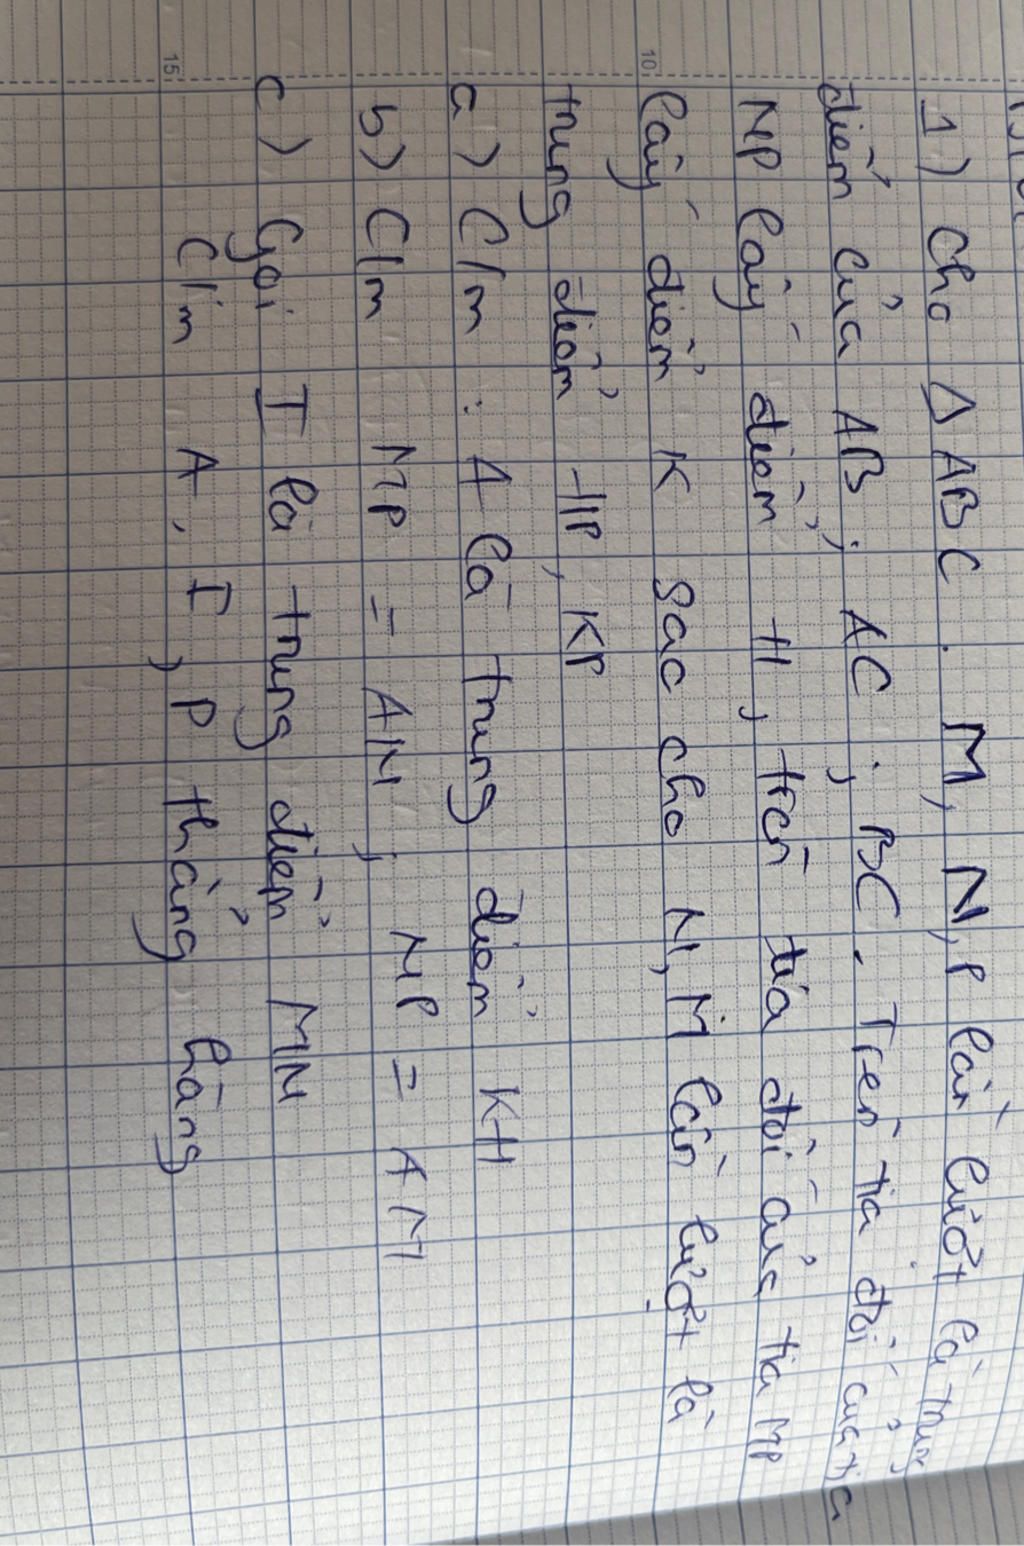 1) Cho Δ ABC. M, N, P lần lượt là trung
điểm của AB; AC; BC. Trên tia đối của tia
NP lấy điểm H, trên tia đối của tia MP
lấy điểm K sao cho N, M lần lượt là
trung điểm HP, KP
a) C/m : A là trung điểm KH
b) C/m MP = AN; NP = AM
c) Gọi I là trung điểm MN
C/m A, I, P thẳng hàng
10
15